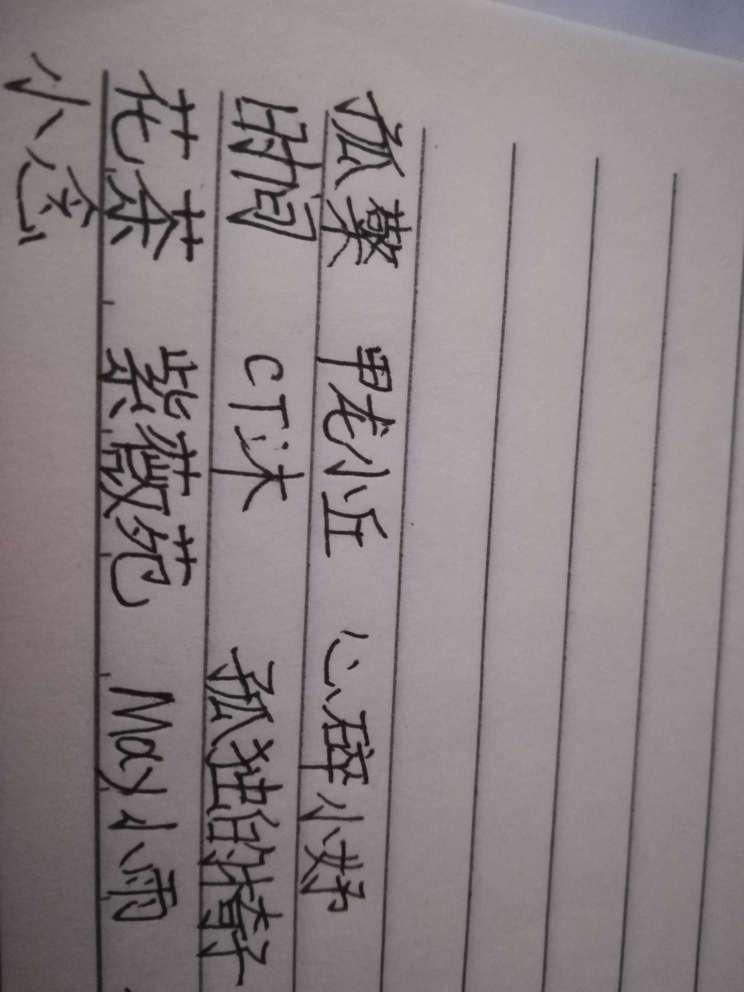 孤檠 甲龙小丘 心碎小妤
时间 CT沐 孤独的椅子
花茶 紫薇苑 May小雨
小念